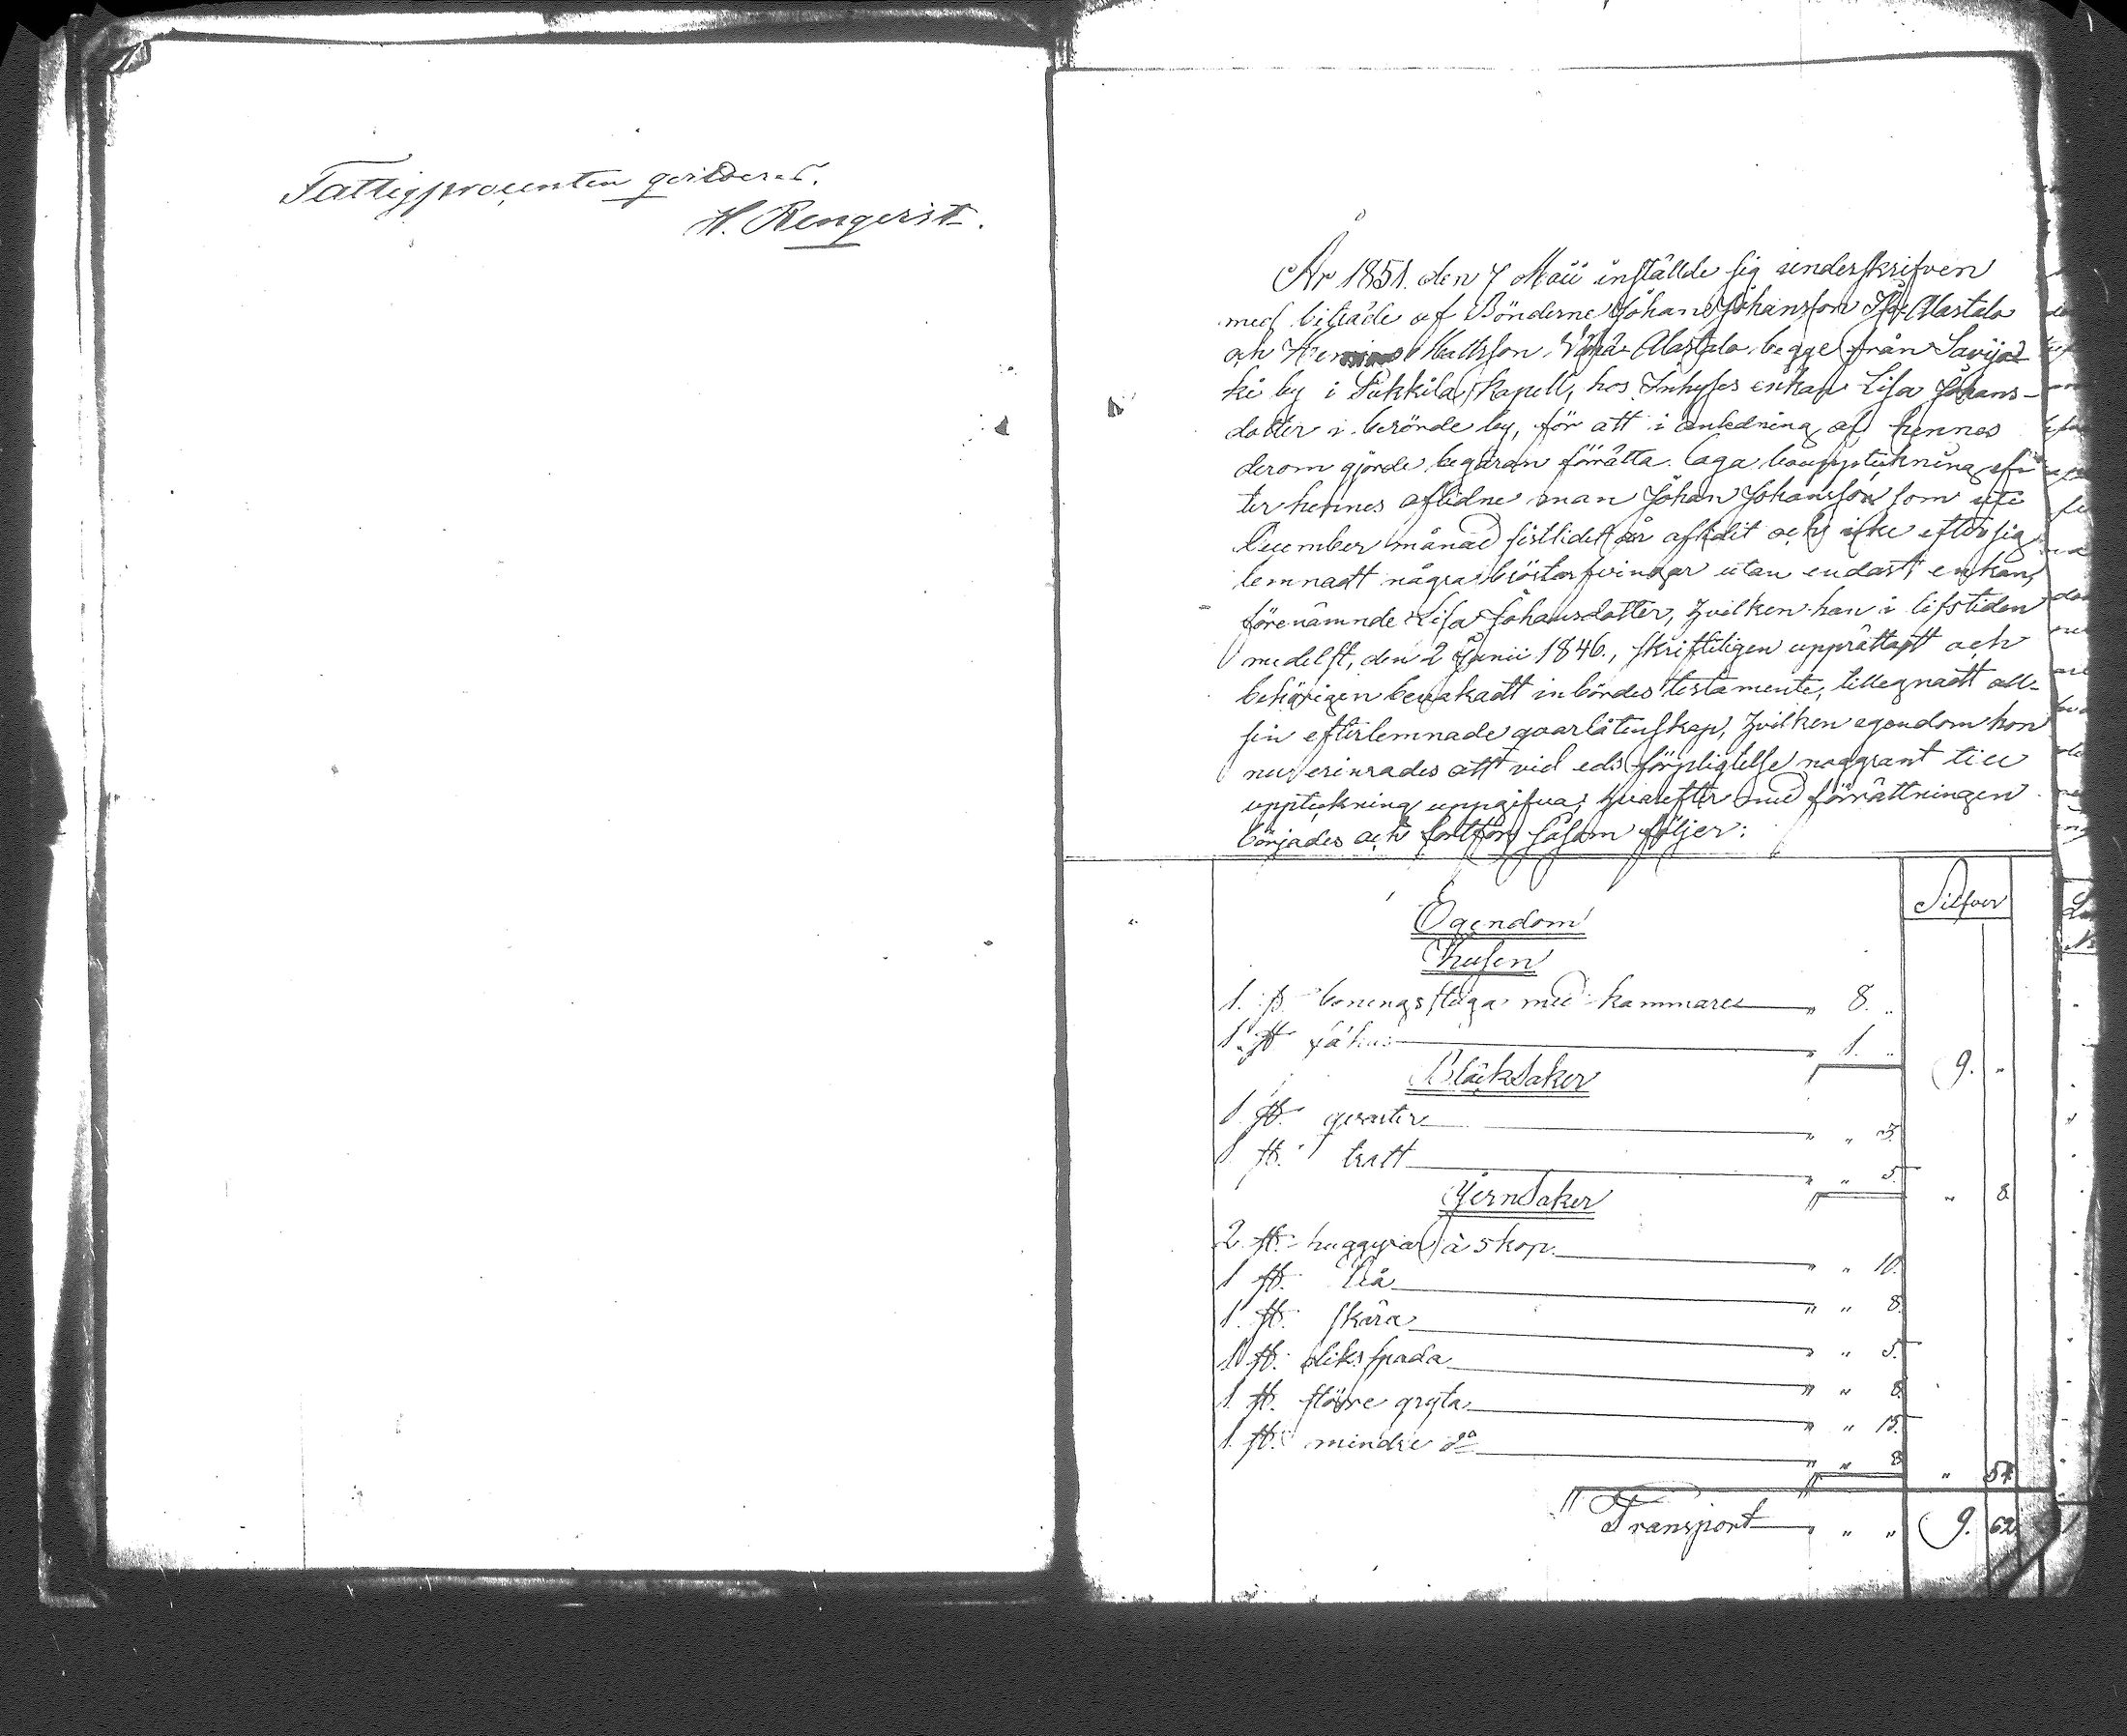 Fattigprocenten qvitteras.
H. Renqvist.
År 1851. den 7 Maii inställde sig underskrifven
med biträde af Bönderne Johan Johansson Iso-Alastalo
och Mattsson Vähä-Alastalo begge från Savijo-
ki by i Pukkila Kapell, hos Inhyses enkan Lisa Johans-
dotter i berörde by, för att i anledning af hennes
derom gjorde begäran förrätta laga bouppteckning ef-
ter hennes aflidne man Johan Johansson som uti
December månad sistlidet år aflidit och icke efter sig
lemnadt några bröstarfvingar utan endast enkan,
förenämnde Lisa Johansdotter, hvilken han i lifstiden
medelst, den 2 Junii 1846., skriftligen upprättadt och
behörigen bevakadt inbördes testamente, tillegnadt all
sin efterlemnade qvarlåtenskap, hvilken egendom hon
nu erinrades att vid eds förpligtelse noggrant till
uppteckning uppgifva; hvarefter med förrättningen
börjades och fortfors såsom följer:
Silfver
Egendom
Husen
1. st. boningsstuga med kammare " 8. "
1 st. fähus " 1. " 9. "
BläckSaker
1 st. qvarter " " 3.
1 st. tratt " " 5. " 8
JernSaker
2 st. huggyxar à 5 kop. " " 10.
1 st. lia " " 8.
1. st. skära " " 5.
1 st. dikspada " " 8.
1. st. större gryta " " 15.
1. st. mindre do " " 8 " 54.
Transport " " 9. 62